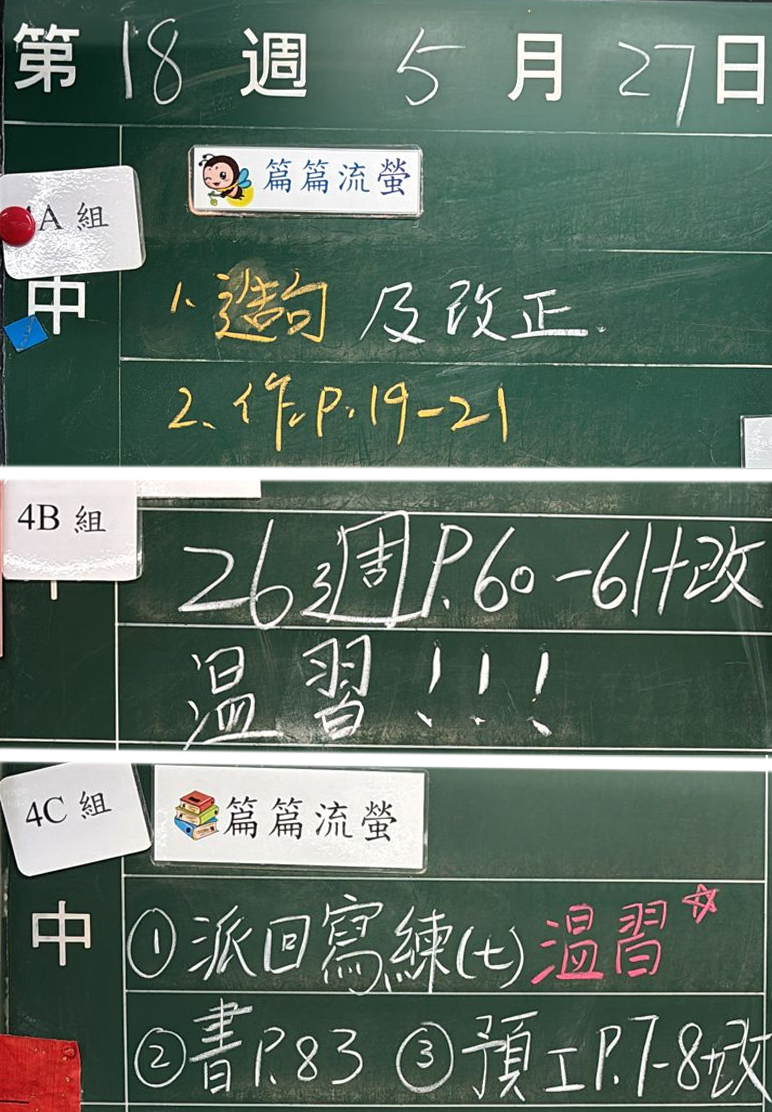 第 18 週 5 月 27 日
篇篇流螢
4A 組
中
1. 造句 及 改正.
2. 作 P. 19-21
4B 組
26週 P.60-61+改
溫習!!!
4C 組
篇篇流螢
中
① 派回寫練(七) 溫習☆
② 書 P.83 ③ 預工 P.7-8+改